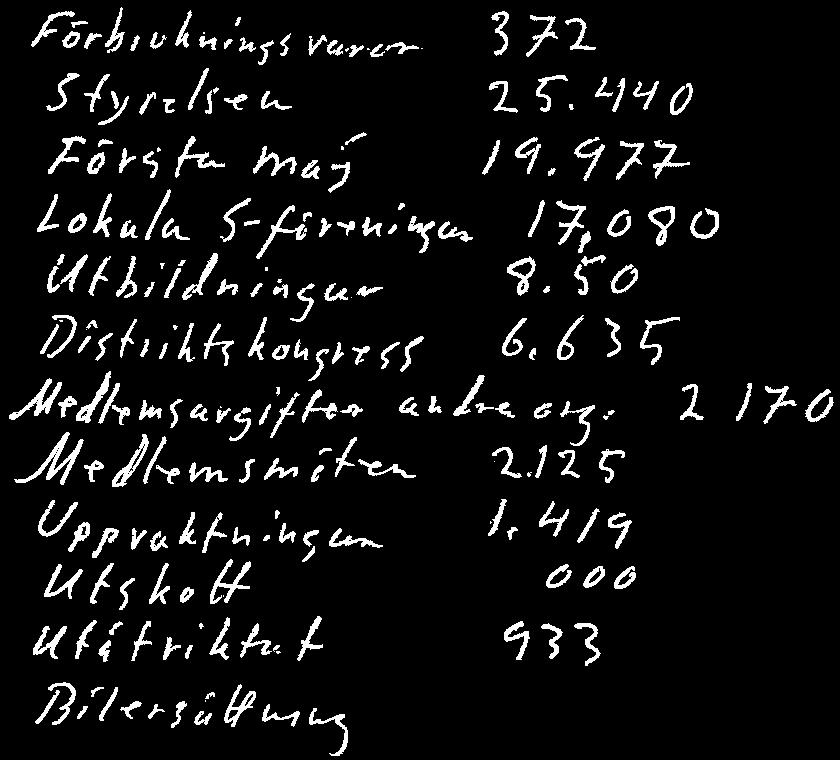 Förbrukningsvaror 372
Styrelsen 25.440
Första maj 19.977
Lokala S-föreningar 17.080
Utbildningar 8.50
Distriktskongress 6.635
Medlemsavgifter andra org. 2 170
Medlemsmöten 2.125
Uppvaktningar 1.419
Utskott 000
Utåtriktat 933
Bilersättning